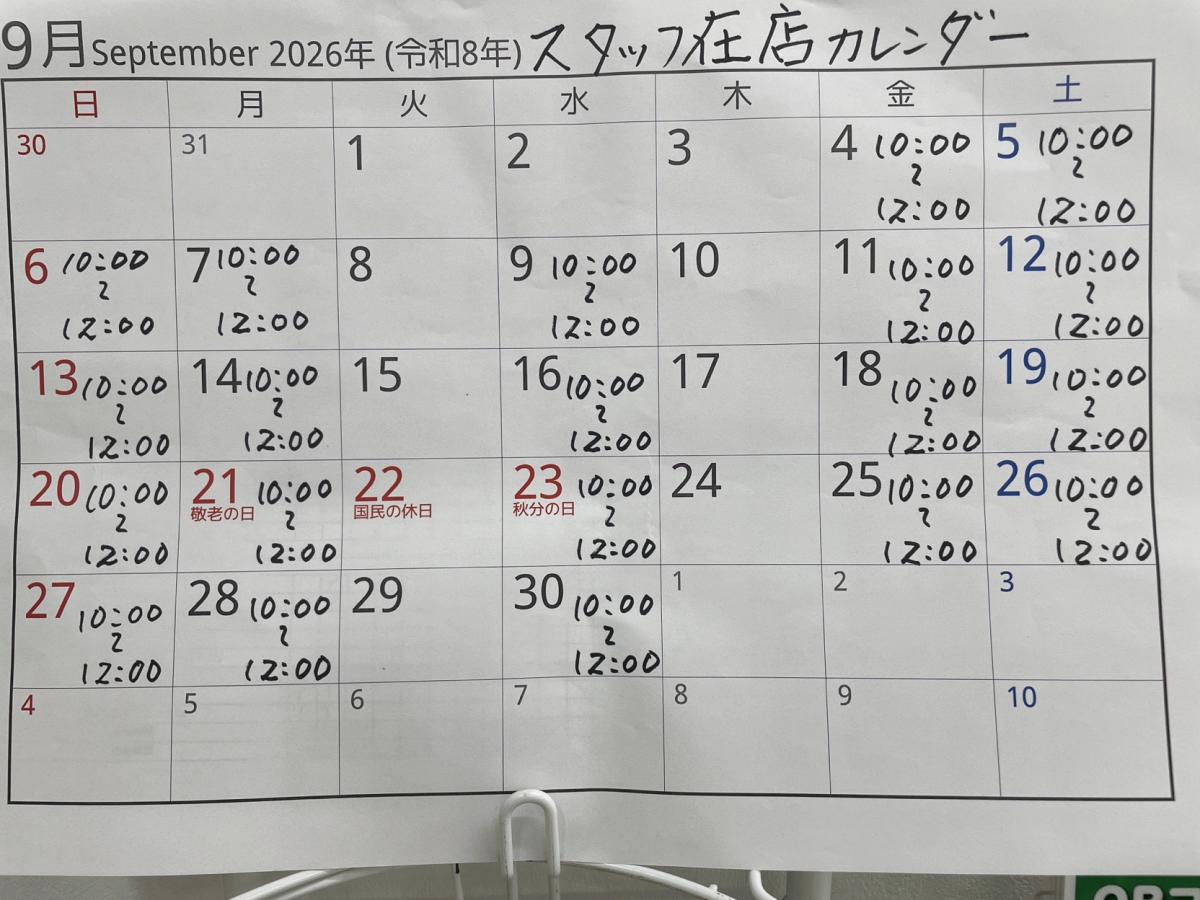 9月 September 2026年 (令和8年) スタッフ在店カレンダー
日 月 火 水 木 金 土
30 31 1 2 3 4 10:00 5 10:00
〜 〜
12:00 12:00
6 10:00 7 10:00 8 9 10:00 10 11 10:00 12 10:00
〜 〜 〜 〜 〜
12:00 12:00 12:00 12:00 12:00
13 10:00 14 10:00 15 16 10:00 17 18 10:00 19 10:00
〜 〜 〜 〜 〜
12:00 12:00 12:00 12:00 12:00
20 10:00 21 10:00 22 23 10:00 24 25 10:00 26 10:00
敬老の日 〜 国民の休日 秋分の日 〜 〜 〜
〜
12:00 12:00 12:00 12:00 12:00
27 10:00 28 10:00 29 30 10:00 1 2 3
〜 〜 〜
12:00 12:00 12:00
4 5 6 7 8 9 10